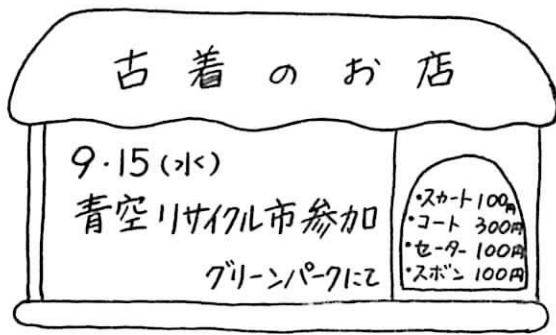 古着のお店
9.15(水)
青空リサイクル市参加
グリーンパークにて
・スカート100円
・コート 300円
・セーター 100円
・スボン 100円